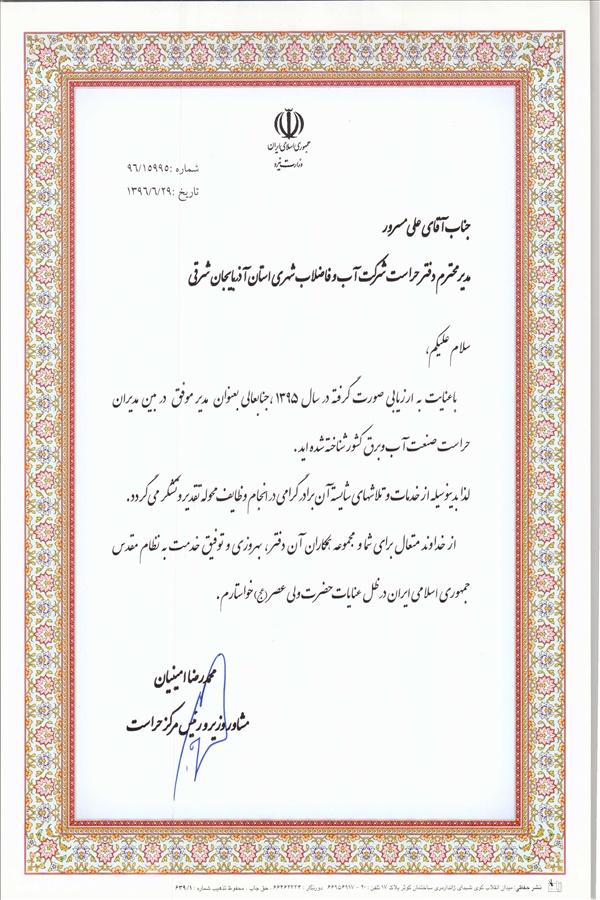 جمهوری اسلامی ایران
وزارت نیرو
شماره :۹۶/۱۵۹۹۵
تاریخ :۱۳۹۶/۶/۲۹
جناب آقای علی مسرور
مدیر محترم دفتر حراست شرکت آب و فاضلاب شهری استان آذربایجان شرقی
سلام علیکم،
باعنایت به ارزیابی صورت گرفته در سال ۱۳۹۵ ،جنابعالی بعنوان مدیر موفق در بین مدیران
حراست صنعت آب و برق کشور شناخته شده اید.
لذا بدینوسیله از خدمات و تلاشهای شایسته آن برادر گرامی در انجام وظایف محوله تقدیر و تشکر می گردد.
از خداوند متعال برای شما و مجموعه همکاران آن دفتر، بهروزی و توفیق خدمت به نظام مقدس
جمهوری اسلامی ایران در ظل عنایات حضرت ولی عصر(عج) خواستارم.
محمدرضا امینیان
مشاور وزیر و رئیس مرکز حراست
نشر حفاظی: میدان انقلاب کوی شهدای ژاندارمری ساختمان کوثر پلاک ۱۷ تلفن : ۲۰ - ۶۶۹۵۶۹۱۷ دورنگار : ۶۶۴۶۲۲۲۴ ، حق چاپ ، محفوظ تذهیب شماره : ۶۳۹/۱